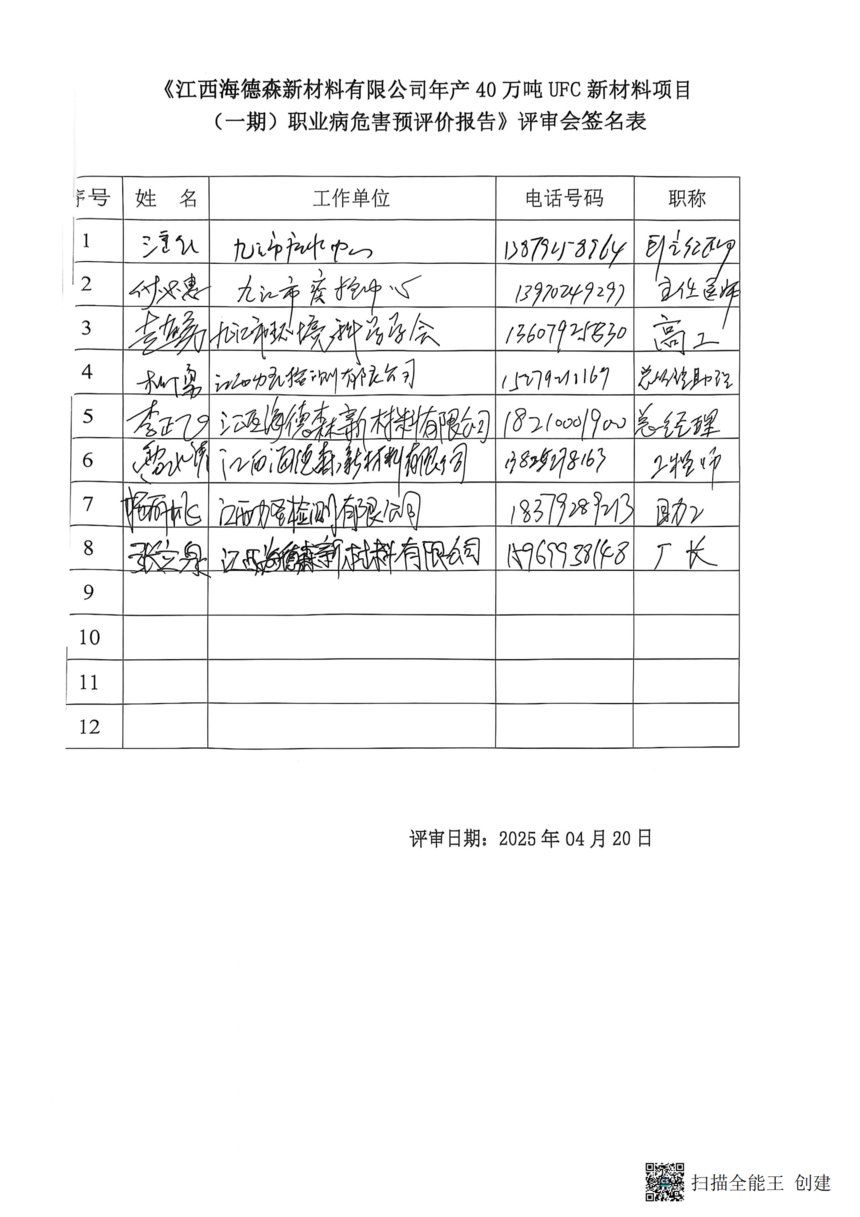 《江西海德森新材料有限公司年产 40 万吨 UFC 新材料项目
（一期）职业病危害预评价报告》评审会签名表
序号 姓 名 工作单位 电话号码 职称
1 九江市 中心
2 付 惠 九江市疾控中心 13970249297 主任医师
3 九江市环境科学学会 13607925830 高工
4 勇 有限公司 15279212169 总经理助理
5 李正 江西海德森新材料有限公司 18210001900 总经理
6 江西海德森新材料有限公司 工程师
7 江西 检测有限公司 18379289213 助工
8 张立泉 江西海德森新材料有限公司 15969938148 厂长
9
10
11
12
评审日期：2025 年 04 月 20 日
扫描全能王 创建